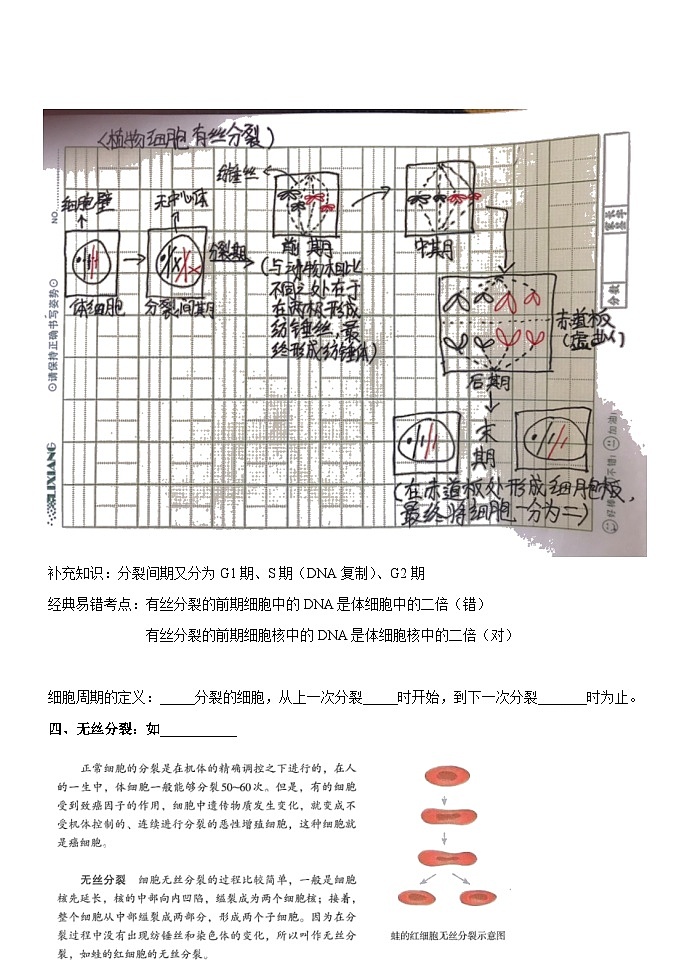 (植物细胞有丝分裂)
NO.
纺锤丝
细胞壁
无中心体
分裂期
体细胞
分裂间期
前期
(与动物相比
不同之处在于
在两极形成
纺锤丝,最
终形成纺锤体)
中期
赤道板
(虚曲)
后期
末
期
(在赤道板处形成细胞板,
最终将细胞一分为二)
◎请保持正确书写姿势◎
LIXIANG
家长
签字
分数
加油!
不错!
好棒
补充知识:分裂间期又分为 G1 期、S 期(DNA 复制)、G2 期
经典易错考点:有丝分裂的前期细胞中的 DNA 是体细胞中的二倍(错)
有丝分裂的前期细胞核中的 DNA 是体细胞核中的二倍(对)
细胞周期的定义:_____分裂的细胞,从上一次分裂_____时开始,到下一次分裂_______时为止。
四、无丝分裂:如___________
正常细胞的分裂是在机体的精确调控之下进行的,在人
的一生中,体细胞一般能够分裂50~60次。但是,有的细胞
受到致癌因子的作用,细胞中遗传物质发生变化,就变成不
受机体控制的、连续进行分裂的恶性增殖细胞,这种细胞就
是癌细胞。
无丝分裂 细胞无丝分裂的过程比较简单,一般是细胞
核先延长,核的中部向内凹陷,缢裂成为两个细胞核;接着,
整个细胞从中部缢裂成两部分,形成两个子细胞。因为在分
裂过程中没有出现纺锤丝和染色体的变化,所以叫作无丝分
裂,如蛙的红细胞的无丝分裂。
蛙的红细胞无丝分裂示意图